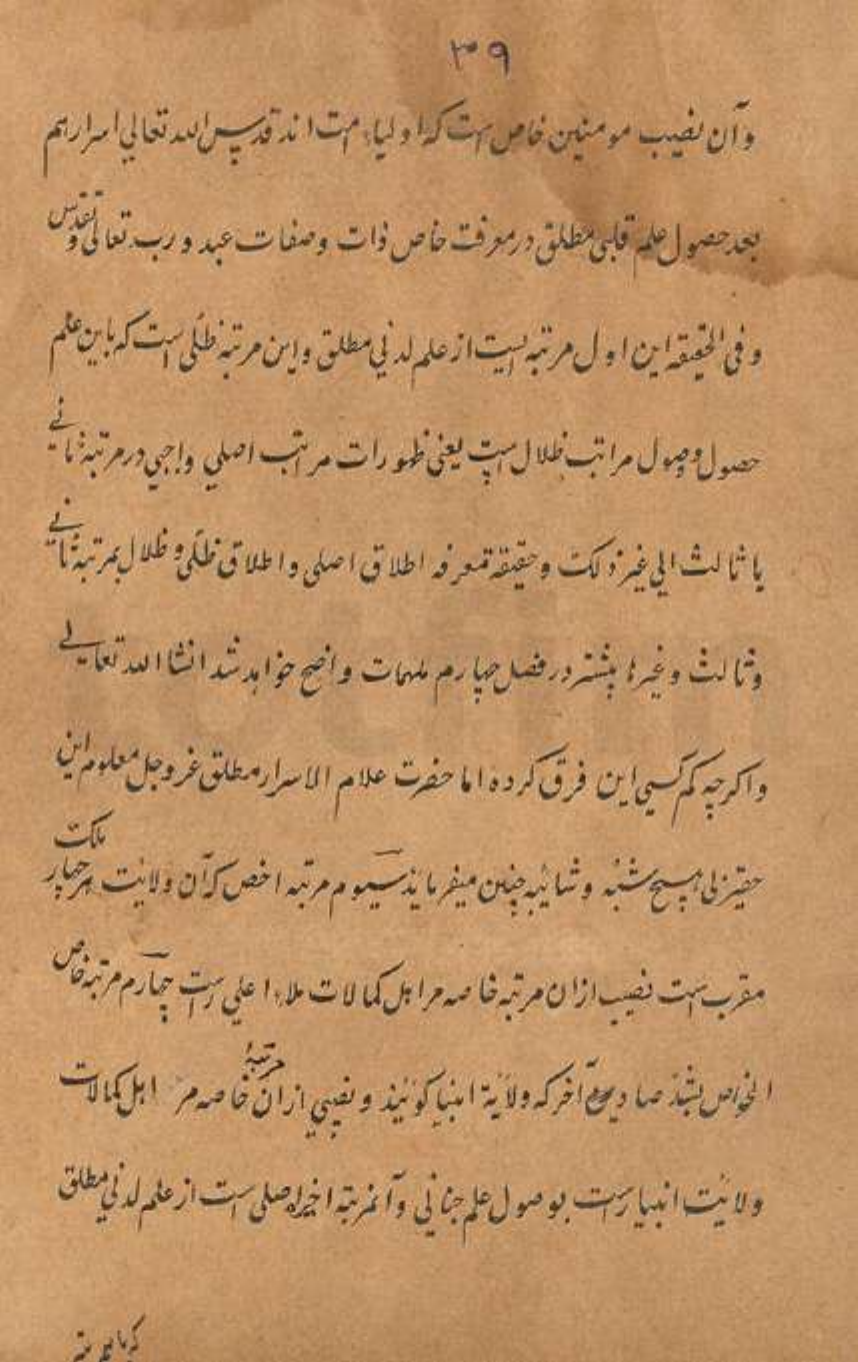 ۳۹
وآن نصیب مومنین خاص است که اولیاء امت اند قدس الله تعالی اسرارهم
بعد حصول علم قلبی مطلق در معرفت خاص ذات وصفات عبد و رب تعالی وتقدس
و فی الحقیقه این اول مرتبه ایست از علم لدنی مطلق واین مرتبه ظلی است که باین علم
حصول وصول مراتب ظلال است یعنی ظهورات مراتب اصلی واجبی در مرتبهٔ ثانی
یا ثالث الی غیر ذلک وحقیقة تعرفه اطلاق اصلی واطلاق ظلی و ظلال بمرتبهٔ ثانی
وثالث وغیرها پیشتر در فصل چهارم ملهمات واضح خواهد شد انشاالله تعالی
واکرچه کم کسی این فرق کرده اما حضرت علام الاسرار مطلق عزوجل معلوم این
حقیر بی هیچ شبه وشائبه چنین میفرماید سیوم مرتبه اخص که آن ولایت هر چهار ملک
مقرب است نصیب ازان مرتبه خاصه مر اهل کمالات ملاء اعلی راست چهارم مرتبه خاص
الخواص آخر که ولایة انبیا کویند ونصیبی ازان مرتبهٔ خاصه مر اهل کمالات
ولایت انبیا راست بوصول علم جنانی وآنمرتبه اخیر اصلی است از علم لدنی مطلق